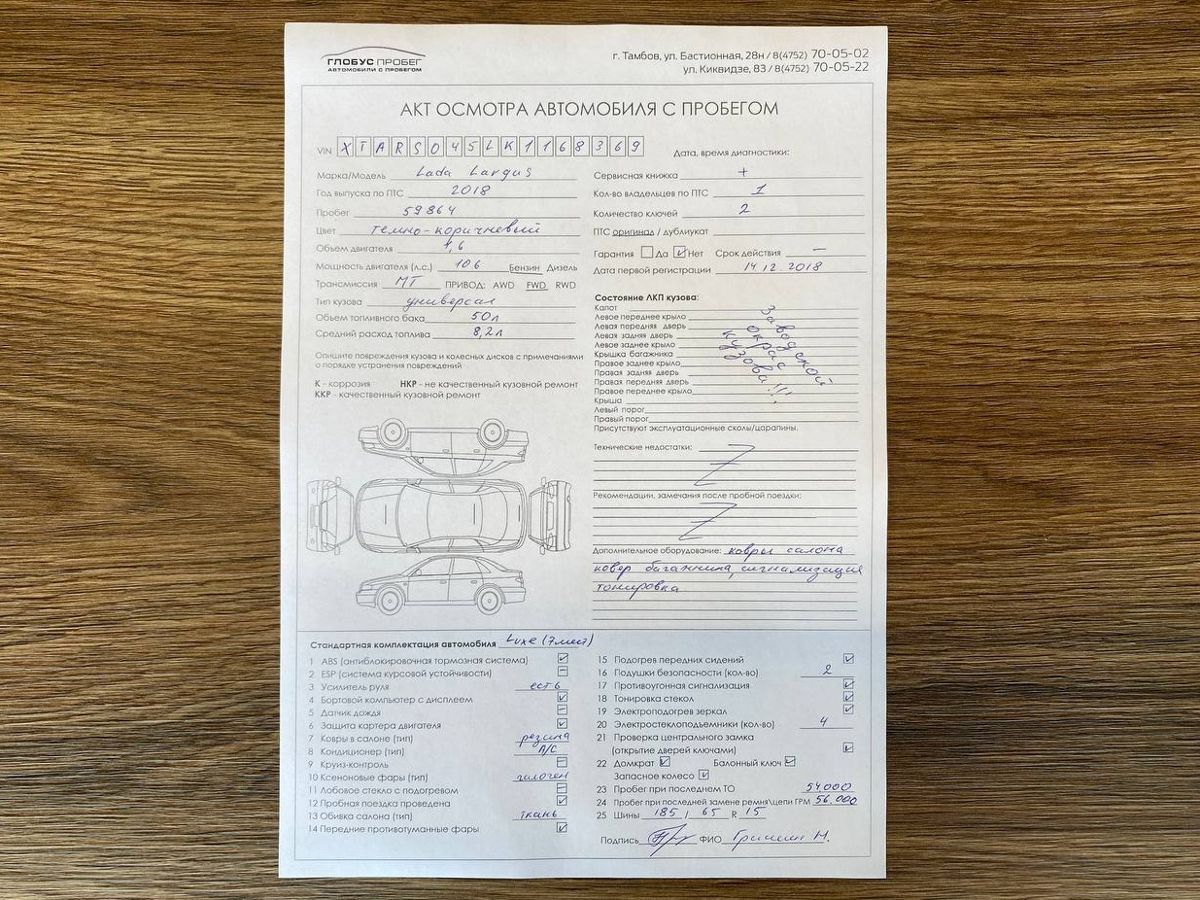 ГЛОБУС ПРОБЕГ
АВТОМОБИЛИ С ПРОБЕГОМ
г. Тамбов, ул. Бастионная, 28н / 8(4752) 70-05-02
ул. Киквидзе, 83 / 8(4752) 70-05-22
АКТ ОСМОТРА АВТОМОБИЛЯ С ПРОБЕГОМ
VIN XTARS045LK1168369
Марка/Модель Lada Largus
Год выпуска по ПТС 2018
Пробег 59864
Цвет темно-коричневый
Объем двигателя 1,6
Мощность двигателя (л.с.) 106 Бензин Дизель
Трансмиссия МТ ПРИВОД: AWD FWD RWD
Тип кузова универсал
Объем топливного бака 50л
Средний расход топлива 8,2л
Опишите повреждения кузова и колесных дисков с примечаниями
о порядке устранения повреждений
К - коррозия НКР - не качественный кузовной ремонт
ККР - качественный кузовной ремонт
Дата, время диагностики:
Сервисная книжка +
Кол-во владельцев по ПТС 1
Количество ключей 2
ПТС оригинал / дубликат
Гарантия Да Нет Срок действия —
Дата первой регистрации 14.12.2018
Состояние ЛКП кузова:
Капот
Левое переднее крыло
Левая передняя дверь
Левая задняя дверь
Левое заднее крыло
Крышка багажника
Правое заднее крыло
Правая задняя дверь
Правая передняя дверь
Правое переднее крыло
Крыша
Левый порог
Правый порог
Заводской
окрас
кузова!!!
Присутствуют эксплуатационные сколы/царапины.
Технические недостатки: Z
Рекомендации, замечания после пробной поездки:
Z
Дополнительное оборудование: ковры салона
ковер багажника, сигнализация
тонировка
Стандартная комплектация автомобиля Luxe (7 мест)
1 ABS (антиблокировочная тормозная система)
2 ESP (система курсовой устойчивости) —
3 Усилитель руля есть
4 Бортовой компьютер с дисплеем
5 Датчик дождя —
6 Защита картера двигателя
7 Ковры в салоне (тип) резина
8 Кондиционер (тип) A/C
9 Круиз-контроль —
10 Ксеноновые фары (тип) галоген
11 Лобовое стекло с подогревом —
12 Пробная поездка проведена
13 Обивка салона (тип) ткань
14 Передние противотуманные фары
15 Подогрев передних сидений
16 Подушки безопасности (кол-во) 2
17 Противоугонная сигнализация
18 Тонировка стекол
19 Электроподогрев зеркал
20 Электростеклоподъемники (кол-во) 4
21 Проверка центрального замка
(открытие дверей ключами)
22 Домкрат Балонный ключ
Запасное колесо
23 Пробег при последнем ТО 54000
24 Пробег при последней замене ремня\цепи ГРМ 56.000
25 Шины 185 / 65 R 15
Подпись ФИО Гришин Н.